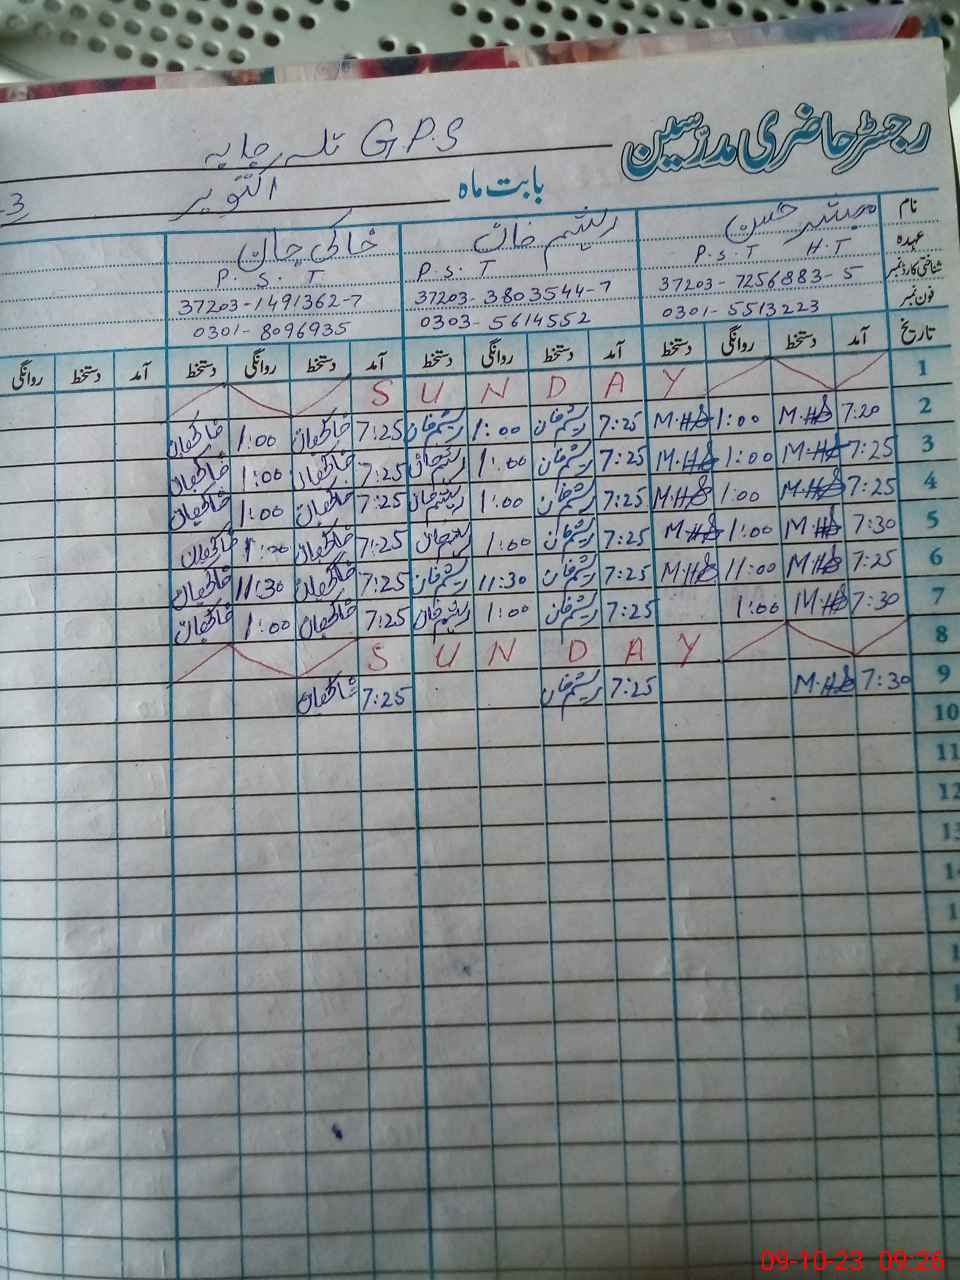 رجسٹر حاضری مدرسین
G.P.S تلہ چاپہ
بابت ماہ اکتوبر
نام مبشر حسن ریشم خان خاکی جان
عہدہ P.S.T H.T P.S.T P.S.T
شناختی کارڈ نمبر 37203-7256883-5 37203-3803544-7 37203-1491362-7
فون نمبر 0301-5513223 0303-5614552 0301-8096935
تاریخ آمد دستخط روانگی دستخط آمد دستخط روانگی دستخط آمد دستخط روانگی دستخط آمد دستخط روانگی
1 S U N D A Y
2 7:20 1:00 7:25 ریشم خان 1:00 ریشم خان 7:25 1:00
3 7:25 1:00 7:25 ریشم خان 1:00 ریشم خان 7:25 1:00
4 7:25 1:00 7:25 ریشم خان 1:00 ریشم خان 7:25 1:00
5 7:30 1:00 7:25 ریشم خان 1:00 ریشم خان 7:25 1:00
6 7:25 11:00 7:25 ریشم خان 11:30 ریشم خان 7:25 11:30
7 7:30 1:00 7:25 ریشم خان 1:00 ریشم خان 7:25 1:00
8 S U N D A Y
9 7:30 7:25 ریشم خان 7:25
10
11
12
13
09-10-23 09:26